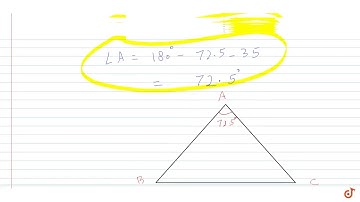 ∠A = 180° - 72.5 - 35
= 72.5°
A
72.5
B
C